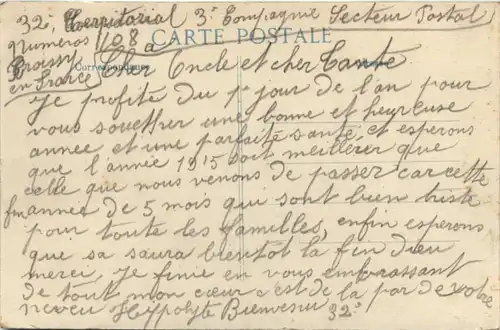 32e Territorial 3e Compagnie Secteur Postal
numeros 108 a
CARTE POSTALE
Correspondance
en France
Cher Oncle et cher Tante
Je profite du 1er jour de l'an pour
vous souettrer une bonne et heureuse
année et une parfaite santé et esperons
que l'année 1915 soit meillerer que
celle que nous venons de passer car cette
fin année de 5 mois qui sont bien triste
pour toute les familles, enfin esperons
que sa saura bientot la fin dieu
merci, je finie en vous embrassant
de tout mon cœur c'est de la par de votre
neveu Hyppolyte Bienvenu 32e